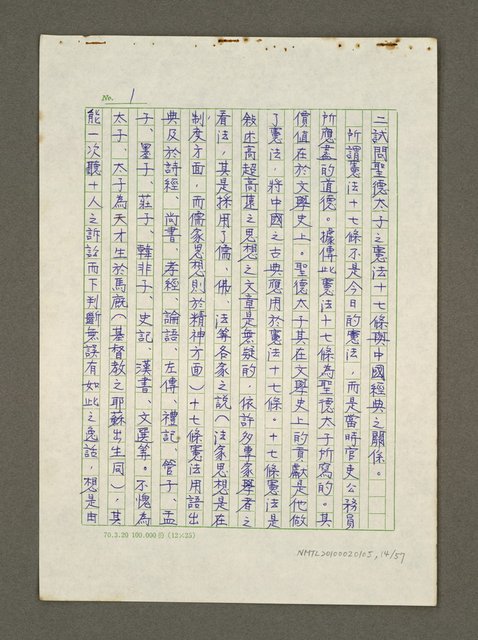 No. 1
二試問聖德太子之憲法十七條與中國經典之關係。
所謂憲法十七條不是今日的憲法，而是當時官吏公務員
所應盡的道德。據傳此憲法十七條為聖德太子所寫的。其
價值在於文學史上。聖德太子其在文學史上的貢獻是他做
了憲法，將中國之古典應用於憲法十七條。十七條憲法是
敘述高超高遠之思想之文章是無疑的，依許多專家學者之
看法，其是採用了儒、佛、法等各家之說（法家思想是在
制度方面，而儒家思想則於精神方面）十七條憲法用語出
典及於詩經、尚書、孝經、論語、左傳、禮記、管子、孟
子、墨子、莊子、韓非子、史記、漢書、文選等。不愧為
太子、太子為天才生於馬廄（基督教之耶穌出生同），其
能一次聽十人之訴訟而下判斷無誤有如此之逸話，想是由
70.3.20 100.000份 (12×25)
NMTL20100020105, 14/57